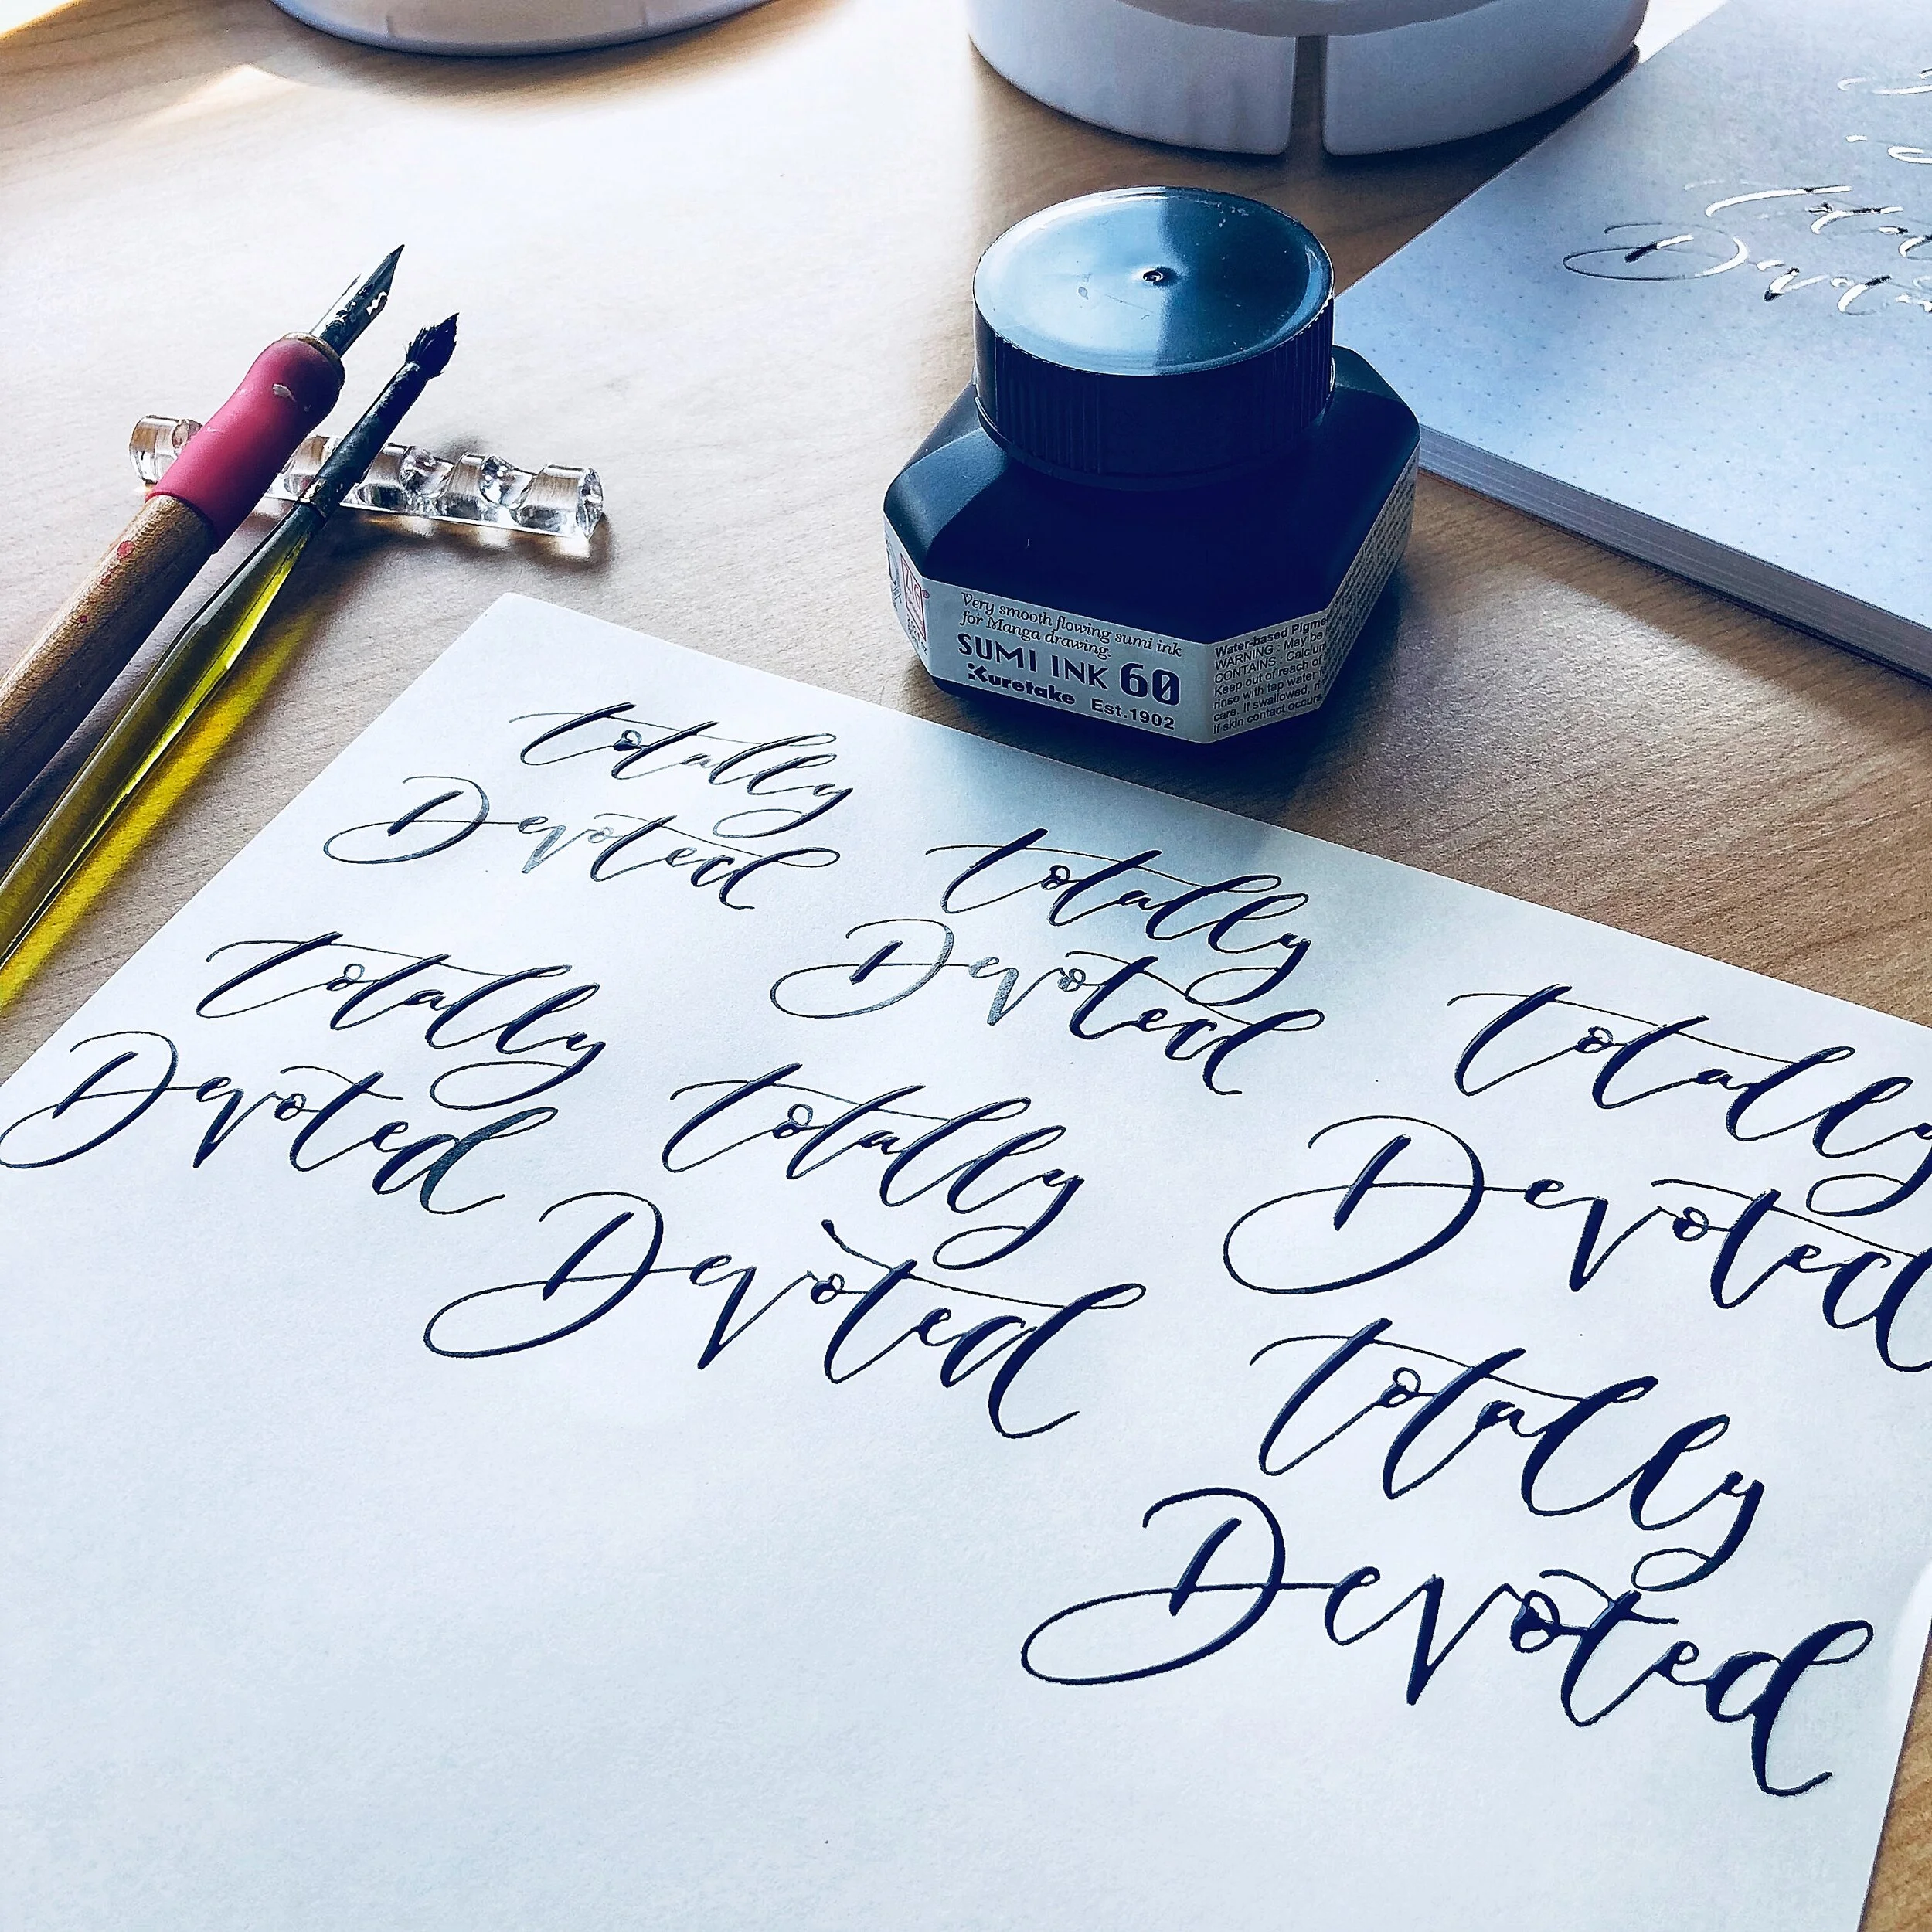 Very smooth flowing sumi ink
for Manga drawing.
SUMI INK 60
Kuretake Est.1902
Water-based Pigme
WARNING : May be
CONTAINS : Calcium
Keep out of reach of
rinse with tap water
care. If swallowed,
If skin contact occurs
totally
Devoted
totally
Devoted
totally
Devoted
totally
Devoted
totally
Devoted
totally
Devoted